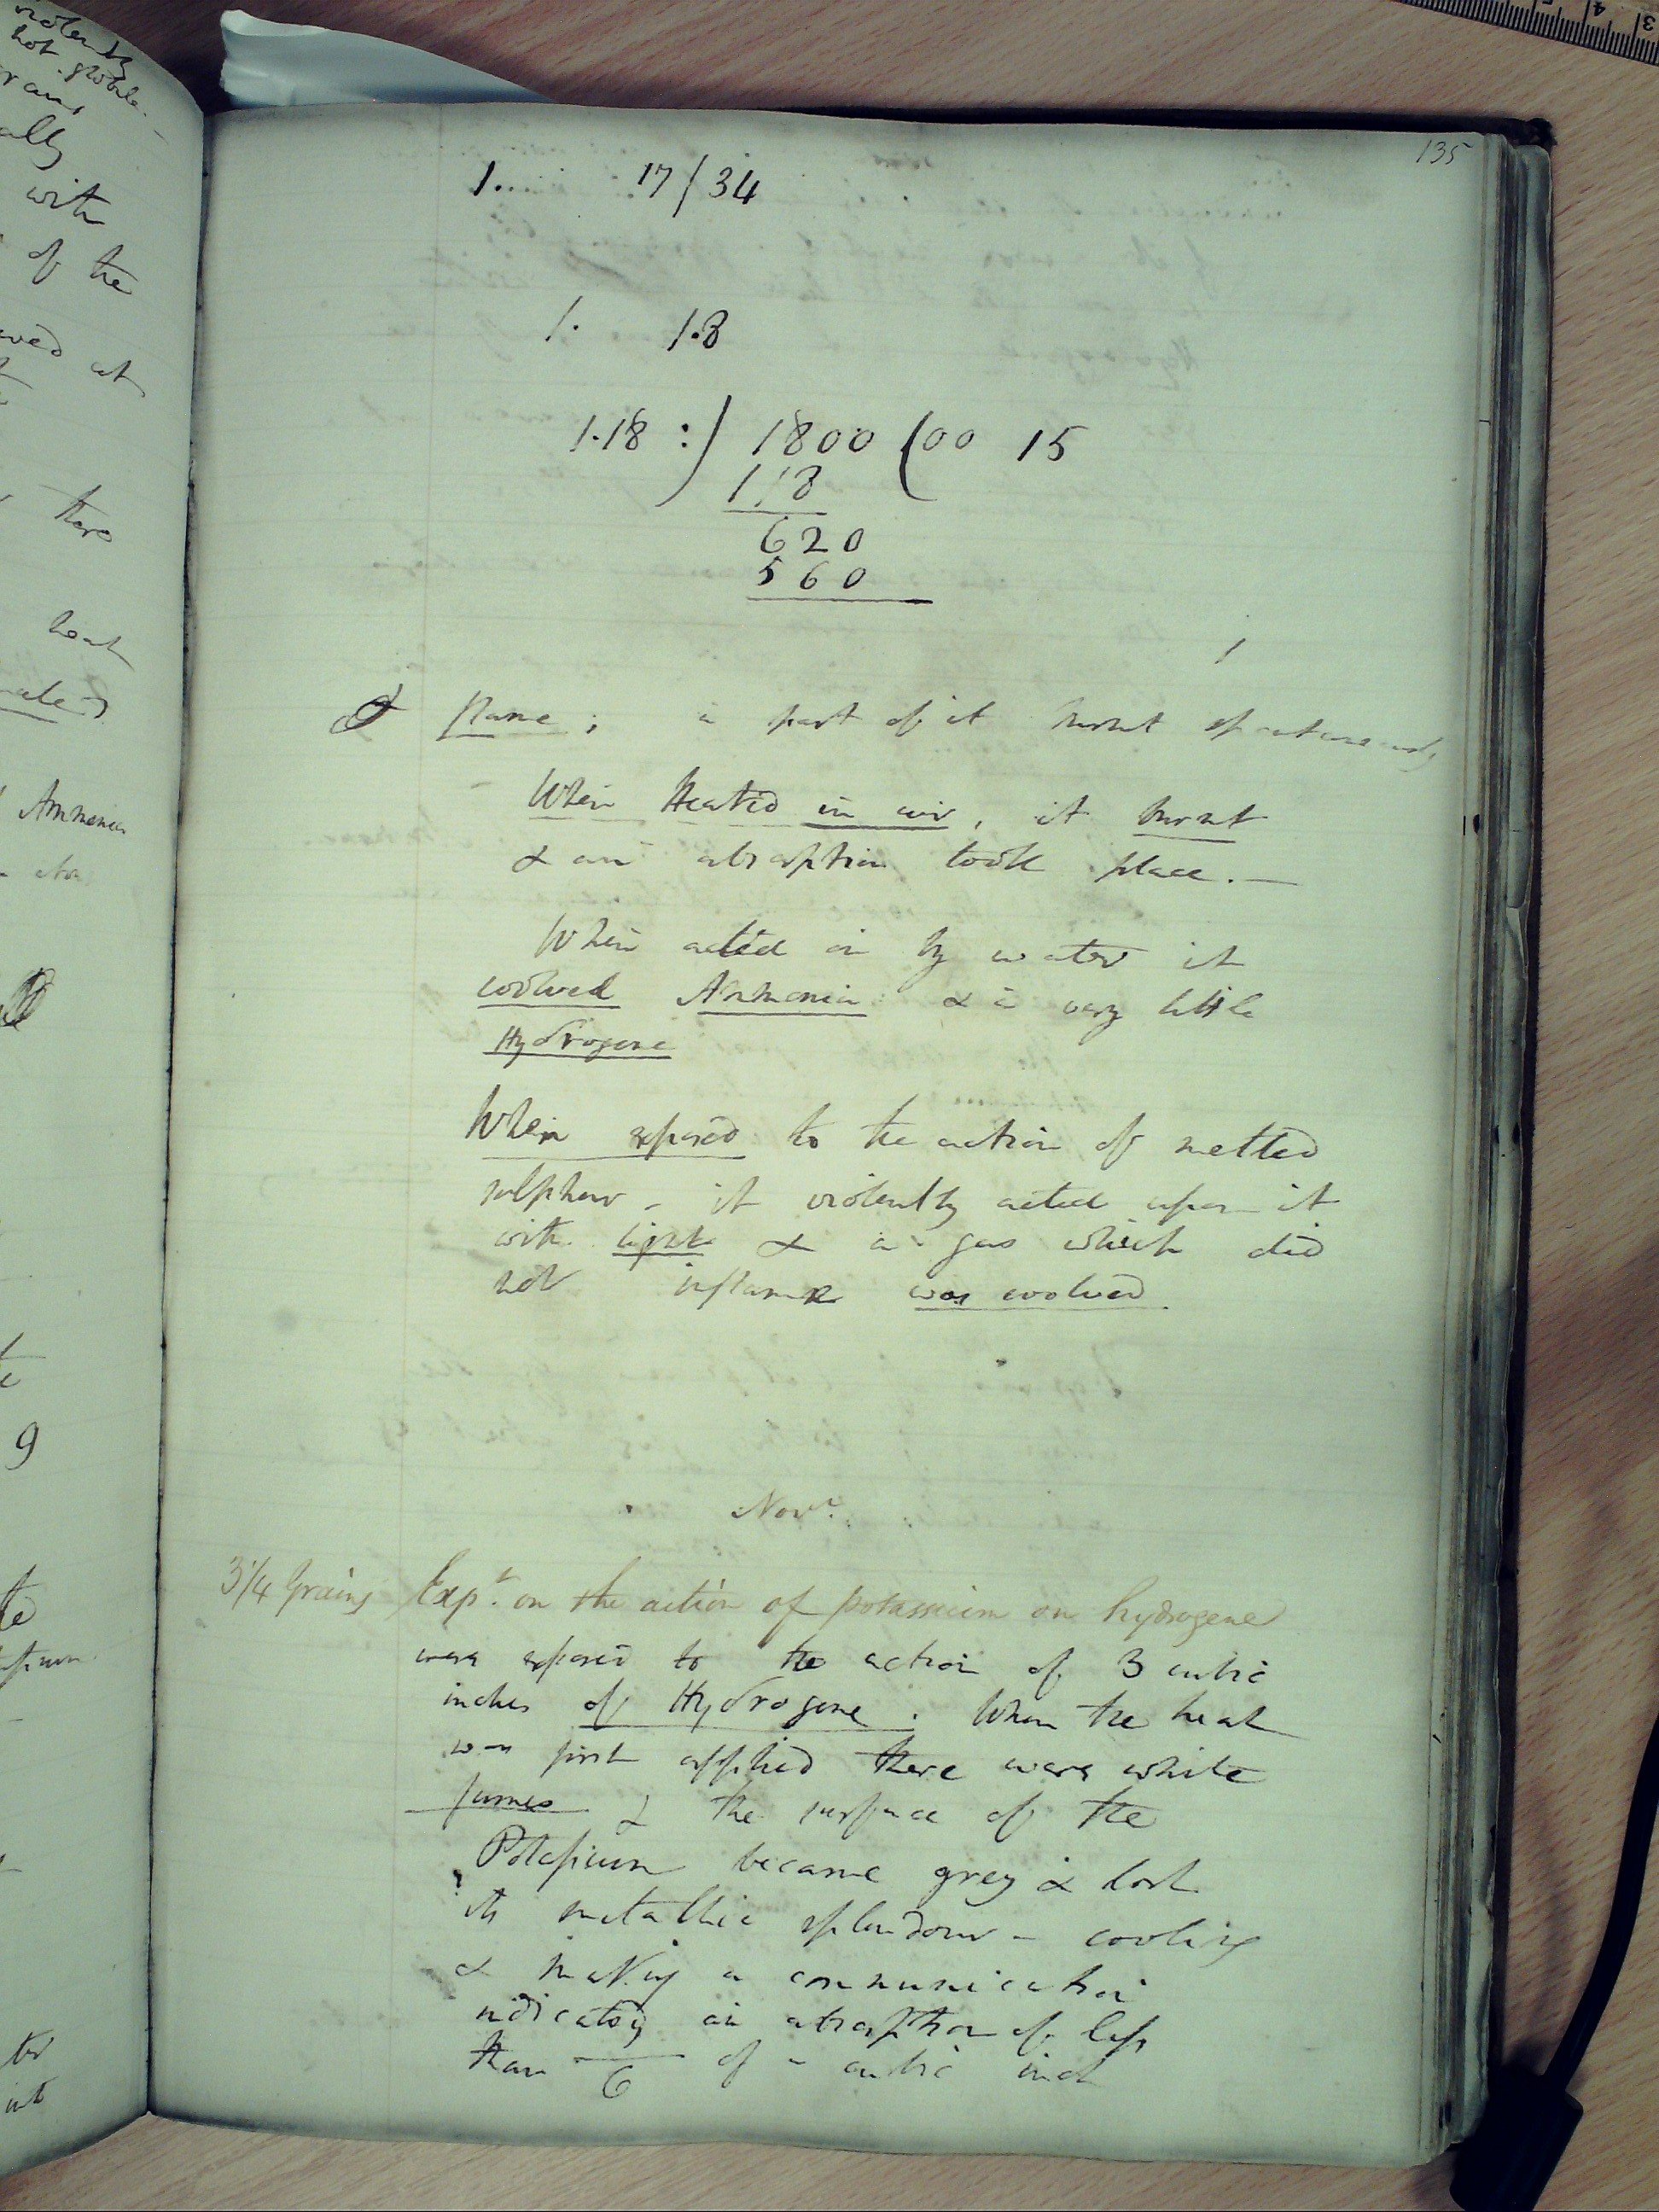 violently
hot globule
ally
with
of the
at
there
heat
Ammonia
9
135
1.. 17/34
1. 1.8
1.18 :) 1800 (00 15
118
620
560
1
& flame; a part of it burnt spontaneously
- When Heated in air, it burnt
& an absorption took place. —
When acted on by water it
evolved Ammonia & a very little
Hydrogene
When exposed to the action of melted
sulphur - it violently acted upon it
with light & a gas which did
not inflame was evolved.
Novr.
3 1/4 Grains Expt. on the action of potassium on hydrogene
were exposed to the action of 3 cubic
inches of Hydrogene. When the heat
was first applied there were white
fumes & the surface of the
Potassium became grey & lost
its metallic splendour - cooling
& making a communication
indicated an absorption of less
than 6 of a cubic inch